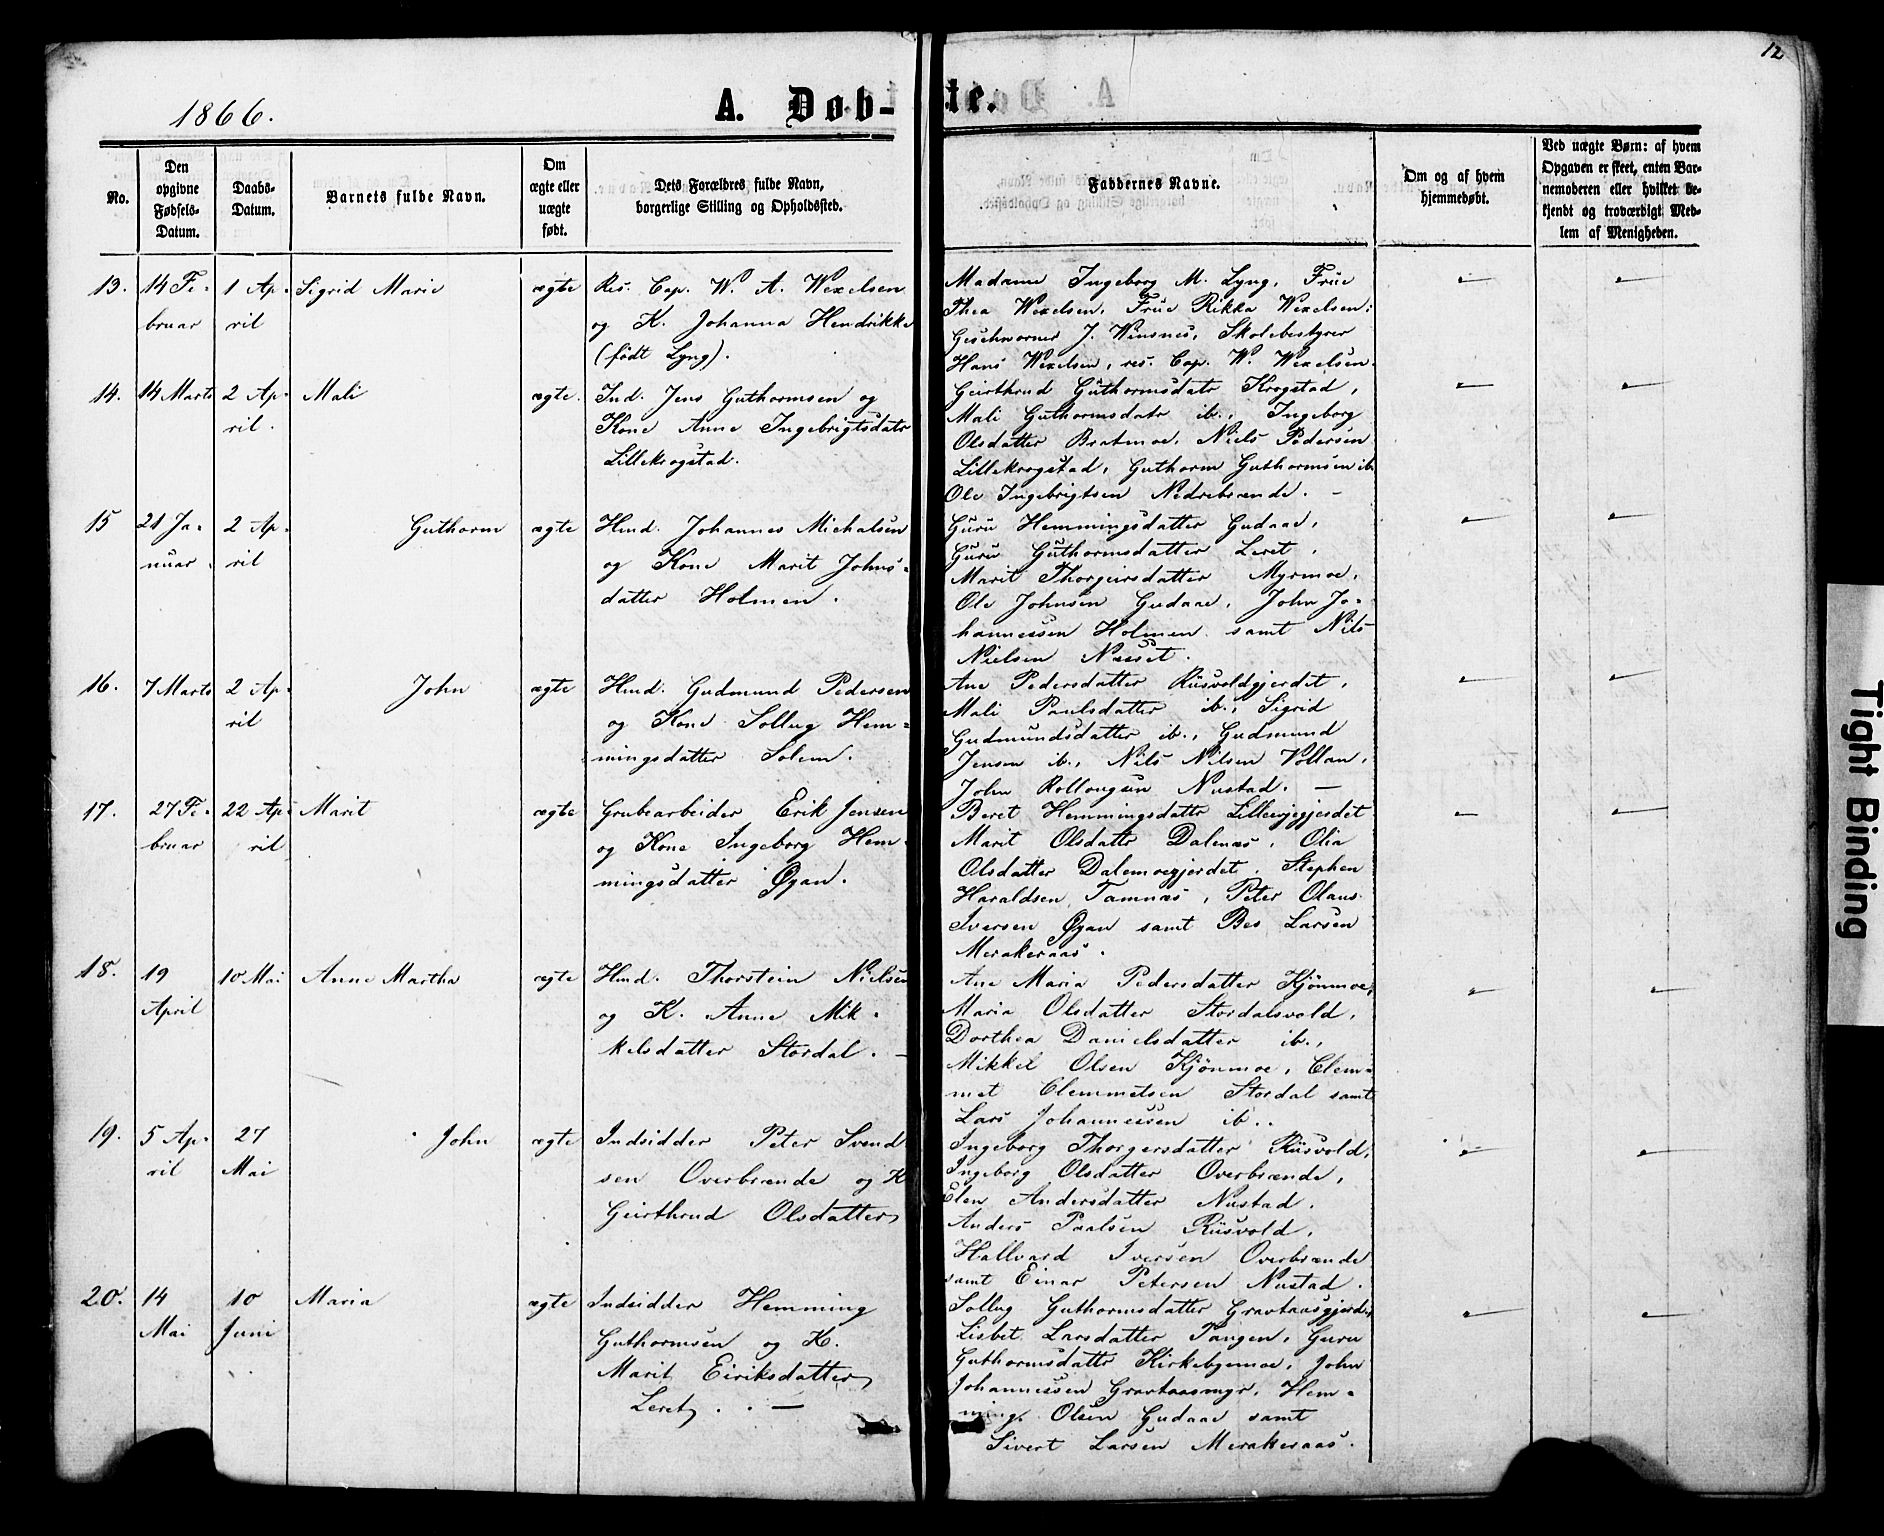 12
1866.
A. Døb-te.
No.
Den
opgivne
Fødsels-
Datum.
Daabs-
Datum.
Barnets fulde Navn.
Om
ægte eller
uægte
født.
Dets Forældres fulde Navn,
borgerlige Stilling og Opholdssted.
Faddernes Navne.
Om og af hvem
hjemmedøbt.
Ved uægte Børn: af hvem
Opgaven er skeet, enten Bar-
nemoderen eller hvilket be-
kjendt og troværdigt Med-
lem af Menigheden.
13.
14 Fe-
bruar
1 Ap-
ril
Sigrid Marie
ægte
Res. Cap. W. A. Wexelsen
og K. Johanna Hendrikke
(født Lyng).
Madame Ingeborg M. Lyng, Frue
Thea Wexelsen, Frue Rikka Wexelsen;
Geschworner J. Winsnes, Skolebestyrer
Hans Wexelsen, res. Cap. W. Wexelsen.
14.
14 Marts
2 Ap-
ril.
Mali
ægte.
Ind. Jens Guthormsen og
Kone Anne Ingebrigtsdatr
Lillekrogstad.
Geirthrud Guthormsdatr Krogstad,
Mali Guthormsdatr ib., Ingeborg
Olsdatter Bratmoe, Niels Pedersen
Lillekrogstad, Guthorm Guthormsen ib
Ole Ingebrigtsen Nedrebrænde. -
15
21 Ja-
nuar
2 Ap-
ril
Guthorm
ægte
Hmd. Johannes Michalsen
og Kone Marit Johns-
datter Holmen.
Guru Hemmingsdatter Gudaae,
Guru Guthormsdatter Leret,
Marit Thorgeirsdatter Myrmoe,
Ole Johnsen Gudaae, John Jo-
hannessen Holmen samt Nils
Nielsen Nusset.
16.
7 Marts
2 Ap-
ril
John
ægte
Hmd. Gudmund Pedersen
og Kone Sollug Hem-
mingsdatter Solem.
Ane Pedersdatter Rusvoldgjerdet,
Mali Paulsdatter ib., Sigrid
Gudmundsdatter ib., Gudmund
Jensen ib., Nils Nilsen Vollan,
John Rollougsen Nustad. -
17.
27 Fe-
bruar
22 Ap-
ril
Marit
ægte
Grubearbeider Erik Jensen
og Kone Ingeborg Hem-
mingsdatter Øyan.
Beret Hemmingsdattr
Marit Olsdattr Dalenæs, Olia
Olsdatter Dalemoegjerdet, Stephen
Haraldsen Tamnæs, Peter Olaus
Iversen Øyan samt Bes Larsen
Merakeraas.
18.
19
April
10 Mai
Anne Martha
ægte
Hmd. Thorstein Nielsen
og K. Anne Mik-
kelsdatter Stordal. -
Ane Maria Pedersdatter Kjønmoe,
Maria Olsdatter Stordalsvold,
Dorthea Danielsdatter ib.,
Mikkel Olsen Kjønmoe, Clem-
met Clemmetsen Stordal samt
Lars Johannessen ib..
19.
5 Ap-
ril
27
Mai
John
ægte
Indsidder Peter Svend
sen Overbrænde og K
Geirthrud Olsdatter
Ingeborg Thorgersdatter Rusvold,
Ingeborg Olsdatter Overbrænde,
Elen Andersdatter Nustad.
Anders Paalsen Rusvold,
Hallvard Iversen Overbrænde
samt Einar Petersen Nustad.
20.
14
Mai
10
Juni
Maria
ægte
Indsidder Hemming
Guthormsen og K.
Marit Eiriksdatter
Leret. . -
Sollug Guthormsdatter
Lisbet Larsdatter Tangen, Guru
Guthormsdattr Kirkebymoe, John
Johannessen Gravtaasmyr, Hem-
ming Olsen Gudaae samt
Sivert Larsen Merakeraas.
Tight Binding